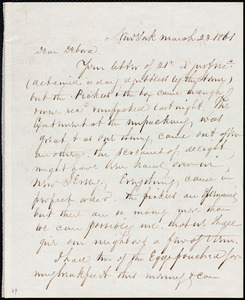 New York March 23 1861
Dear Debora
Your letter of 21st is just rec.
(detained a day doubtless by the storm)
but the Pickles & the box came enough
sooner
unpacked last night. The
excitement at the unpacking was
great & as one thing came out after
another, the screams of delight
might have been heard over in
New Jersey. Everything came in
perfect order. The pickles are
but there are so many more than
we can possibly use that we
give our neighbors a few of them.
I had two of the Eggs poached for
my breakfast this morning & can